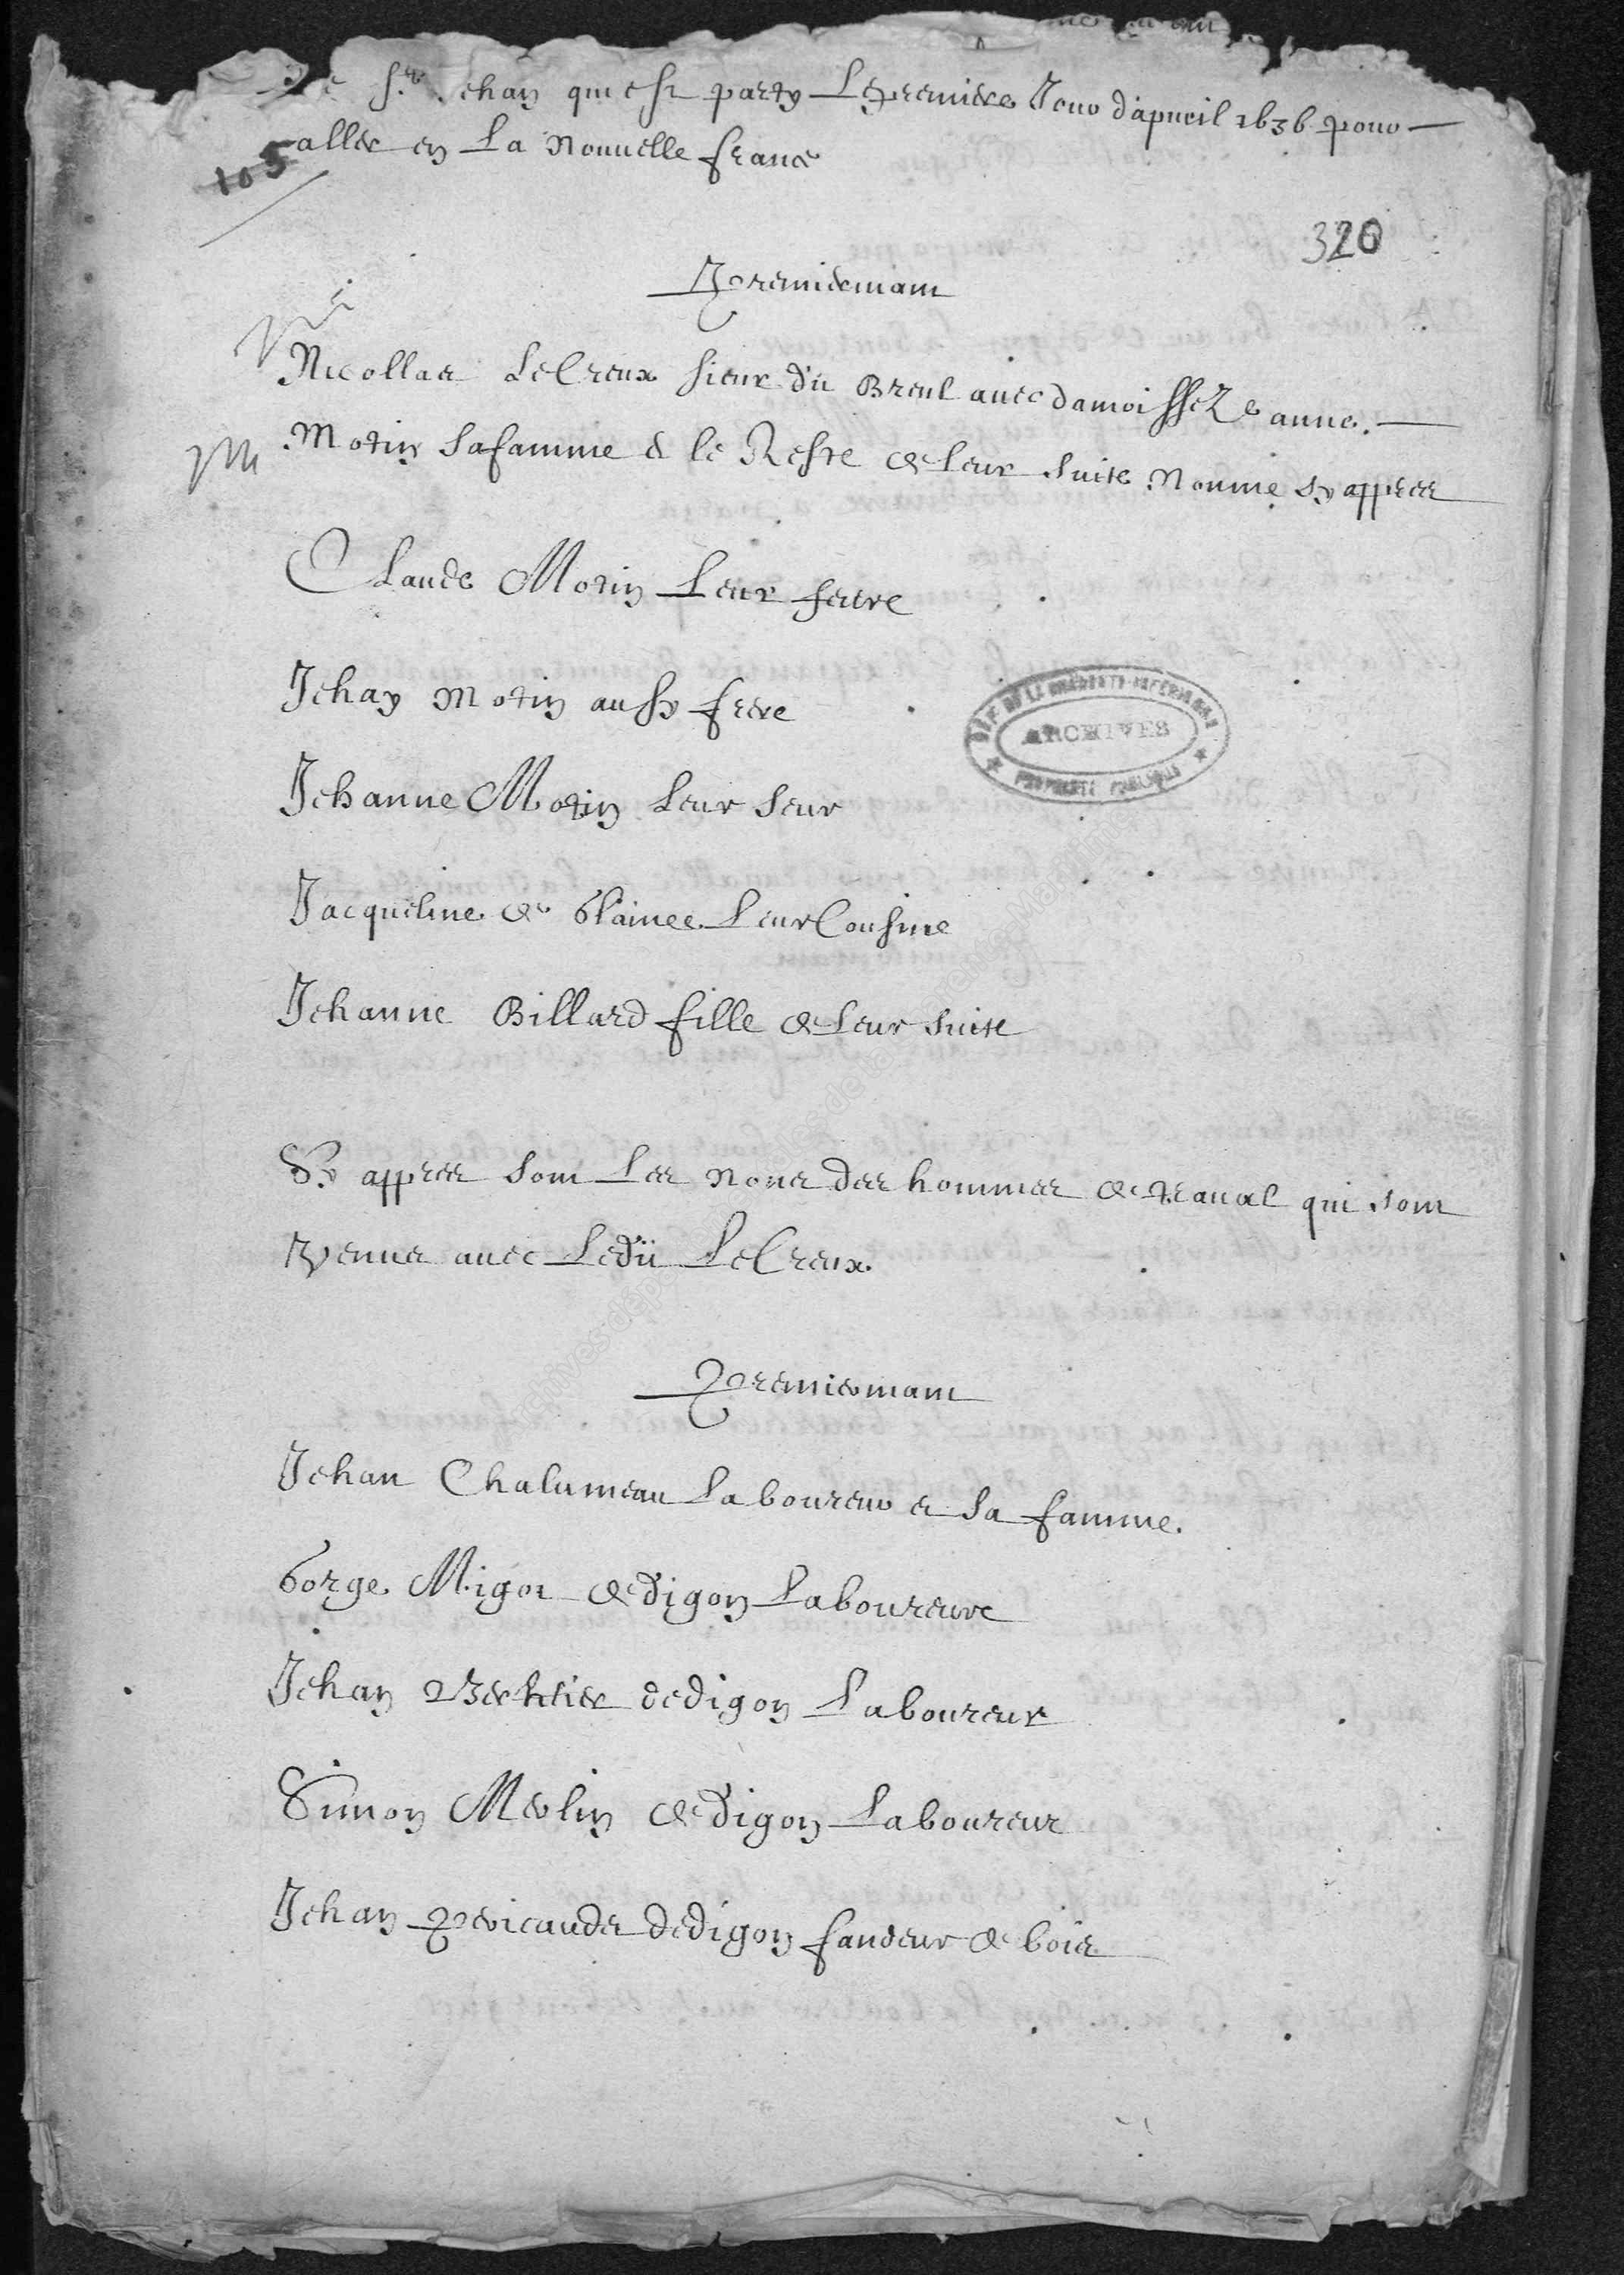 St Jehan qui est party Le premier Jour d'apvril 1636 pour
aller en La Nouuelle france
105
320
Premieremant
Nicollas LeCreux sieur du Breul auec damoisselle anne
Motin sa famme & le Reste de leur suite Nommé sy appres
Claude Motin Leur frere
Jehan Motin aussy frere
Jehanne Motin Leur seur
Jacqueline de Glaines Leur Cousine
Jehanne Billard fille de Leur suite
Sy appres sont Les noms des hommes de traual qui sont
Venus auec Ledit LeCreux
Premieremant
Jehan Chalumeau Laboureur et sa famme.
Gorge Migot de digon Laboureur
Jehan dedigon Laboureur
Simon Merlin de digon Laboureur
Jehan dedigon fandeur de bois
DEP. DE LA CHARENTE-INFERIEURE
ARCHIVES
PROPRIETE PUBLIQUE